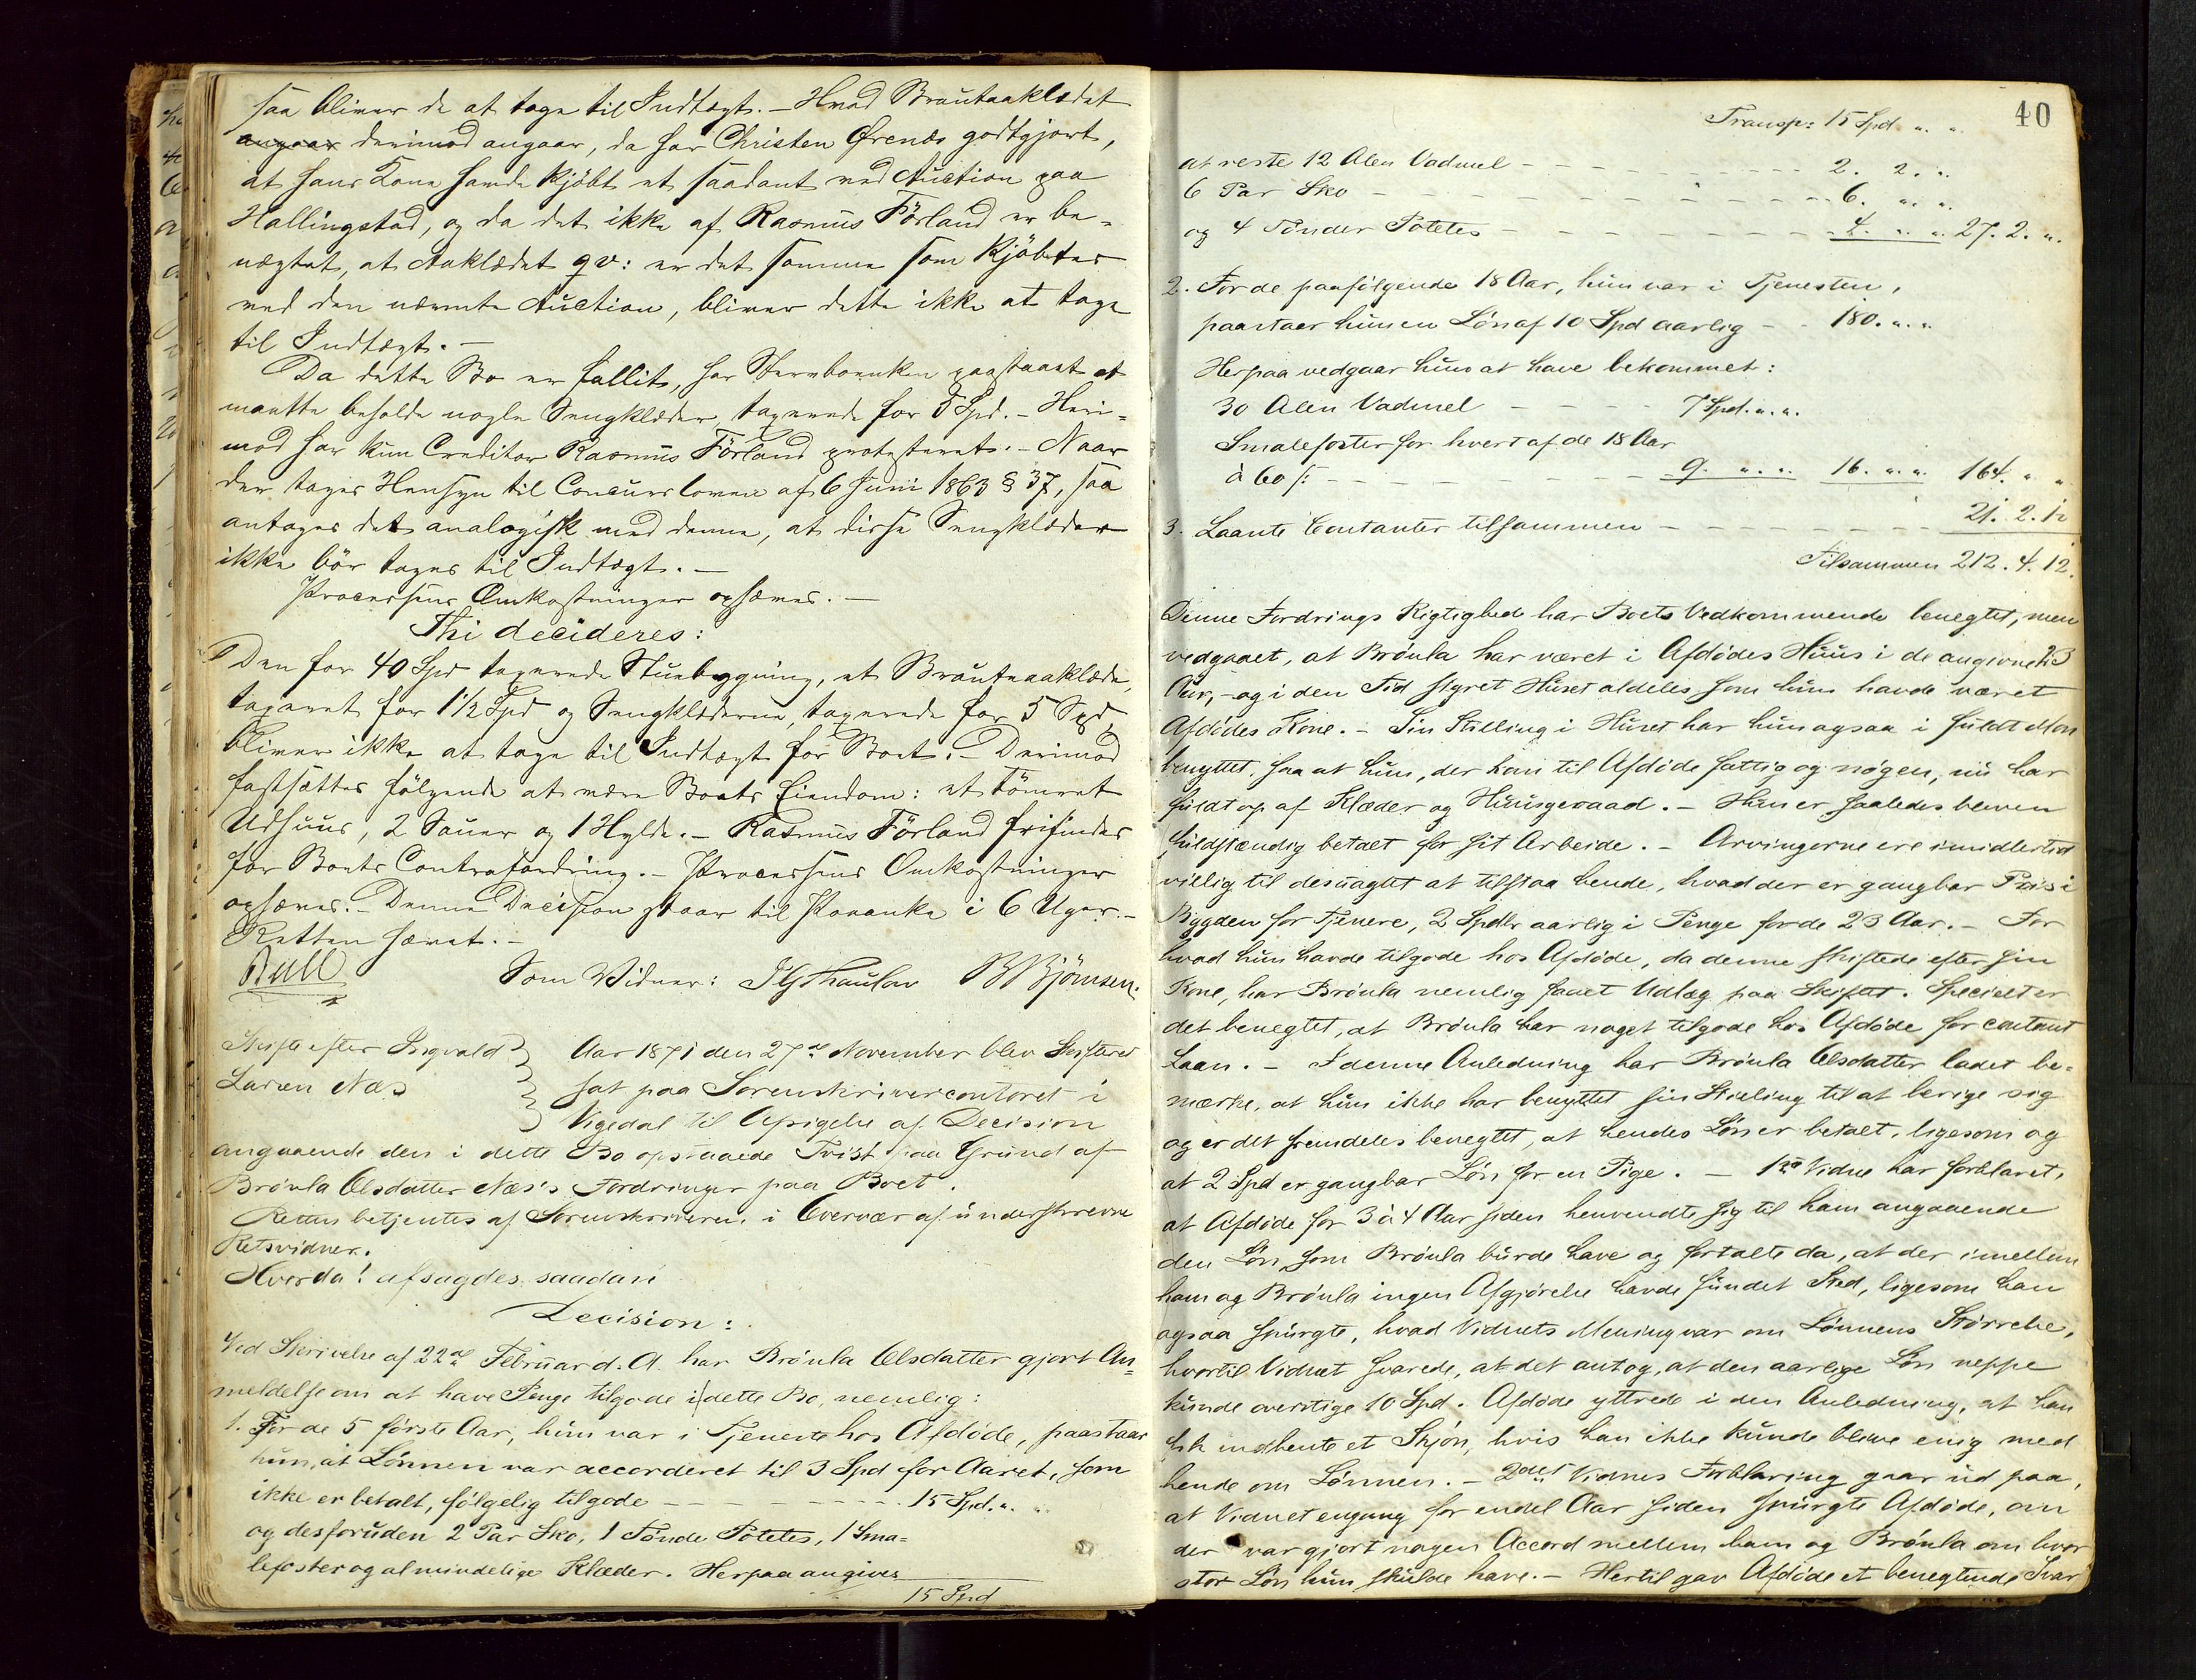 saa bliver de at tage til Indtægt. - Hvad Brautaaklædet
angaar derimod angaar, da har Christen Ørenæs godtgjort,
at hans Kone havde kjöbt et saadant ved Auction paa
Hallingstad, og da det ikke af Rasmus Förland er be-
nægtet, at Aaklædet qv: er det samme som kjöbtes
ved den nævnte Auction, bliver dette ikke at tage
til Indtægt. -
Da dette Bo er fallit, har Stervboenken paastaaet at
maatte beholde nogle Sengklæder, taxerede for 5 Spd. - Heri-
mod har kun Creditor Rasmus Förland protesteret. - Naar
der tages Hensyn til Concursloven af 6 Juni 1863 § 37, saa
antages det analogisk med denne, at disse Sengklæder
ikke bör tages til Indtægt. -
Processens Omkostninger ophæves. -
Thi decideres:
Den for 40 Spd taxerede Stuebygning, et Brautaaklæde,
taxeret for 1½ Spd og Sengklæderne, taxerede for 5 Spd,
bliver ikke at tage til Indtægt for Boet. - Derimod
fastsættes fölgende at være Boets Eiendom: et tömret
Udhuus, 2 Sauer og 1 Hylde. - Rasmus Förland frifindes
for Boets Contrafordring. - Processens Omkostninger
ophæves. - Denne Decision staar til Paaanke i 6 Uger. -
Retten hævet. -
Bull
Som Vidner: Thaulov B Björnsen.
Skifte efter Ingvald
Larsen Næs
Aar 1871 den 27de November blev Skifteret
sat paa Sorenskrivercontoret i
Vigedal til Afsigelse af Decision
angaaende den i dette Bo opstaaede Tvist paa Grund af
Brónla Olsdatter Næs's Fordringer paa Boet.
Retten betjentes af Sorenskriveren, i Overvær af underskrevne
Retsvidner.
Hverda! afsagdes saadan
Decision:
Ved Skrivelse af 22de Februar d. A. har Brónla Olsdatter gjort An-
meldelse om at have Penge tilgode i dette Bo, nemlig:
1. For de 5 förste Aar, hun var i Tjeneste hos Afdöde, paastaar
hun, at Lönnen var accorderet til 3 Spd for Aaret, som
ikke er betalt, fölgelig tilgode - - - - 15 Spd. " "
og desforuden 2 Par Sko, 1 Tönde Potetes, 1 Sma-
lefoster og almindelige Klæder. Herpaa angives
15 Spd
40
Transp: 15 Spd. " "
at reste 12 Alen Vadmel - - - - 2. 2. "
6 Par Sko - - - - 6. " "
og 4 Tönder Potetes - - - - 4. " " 27. 2. "
2. For de paafölgende 18 Aar, hun var i Tjenesten,
paastaar hun en Lön af 10 Spd aarlig - - 180. " "
Herpaa vedgaar hun at have bekommet:
30 Alen Vadmel - - - - 7 Spd. " "
Smalefoster for hvert af de 18 Aar
à 60 ß: - - - - 9. " " 16. " " 164. " "
3. Laante Contanter tilsammen - - - - 21. 2. 12
Tilsammen 212. 4. 12.
Denne Fordrings Rigtighed har Boets Vedkommende benegtet, men
vedgaaet, at Brónla har været i Afdödes Huus i de angivne 23
Aar, - og i den Tid styret Huset aldeles som hun havde været
Afdödes Kone. - Sin Stilling i Huset har hun ogsaa i fuldt Mon
benyttet, saa at hun, der kom til Afdöde fattig og nögen, nu har
fuldt op af Klæder og Huusgeraad. - Hun er saaledes bleven
fuldstændig betalt for sit Arbeide. - Arvingerne ere imidlertid
villig til desuagtet at tilstaa hende, hvad der er gangbar Pris i
Bygden for Tjenere, 2 Spdlr aarlig i Penge for de 23 Aar. - For
hvad hun havde tilgode hos Afdöde, da denne skiftede efter sin
Kone, har Brónla nemlig faaet Udlæg paa Skiftet. Specielt er
det benegtet, at Brónla har noget tilgode hos Afdöde for contant
Laan. - I denne Anledning har Brónla Olsdatter ladet be-
mærke, at hun ikke har benyttet sin Stilling til at berige sig
og er det fremdeles benegtet, at hendes Lön er betalt, ligesom og
at 2 Spd er gangbar Lön for en Pige. - 1ste Vidne har forklaret,
at Afdöde for 3 à 4 Aar siden henvendte sig til ham angaaende
den Lön, som Brónla burde have og fortalte da, at der imellem
ham og Brónla ingen Afgjörelse havde fundet Sted, ligesom han
ogsaa spurgte, hvad Vidnets Mening var om Lönnens Störrelse,
hvortil Vidnet svarede, at det antog, at den aarlige Lön neppe
kunde overstige 10 Spd. Afdöde yttrede i den Anledning, at han
fik indhente et Skjön, hvis han ikke kunde blive enig med
hende om Lönnen. - 2det Vidnes Forklaring gaar ud paa,
at Vidnet engang for endel Aar siden spurgte Afdöde, om
der var gjort nogen Accord mellem ham og Brónla om hvor
stor Lön hun skulde have. - Hertil gav Afdöde et benegtende Svar